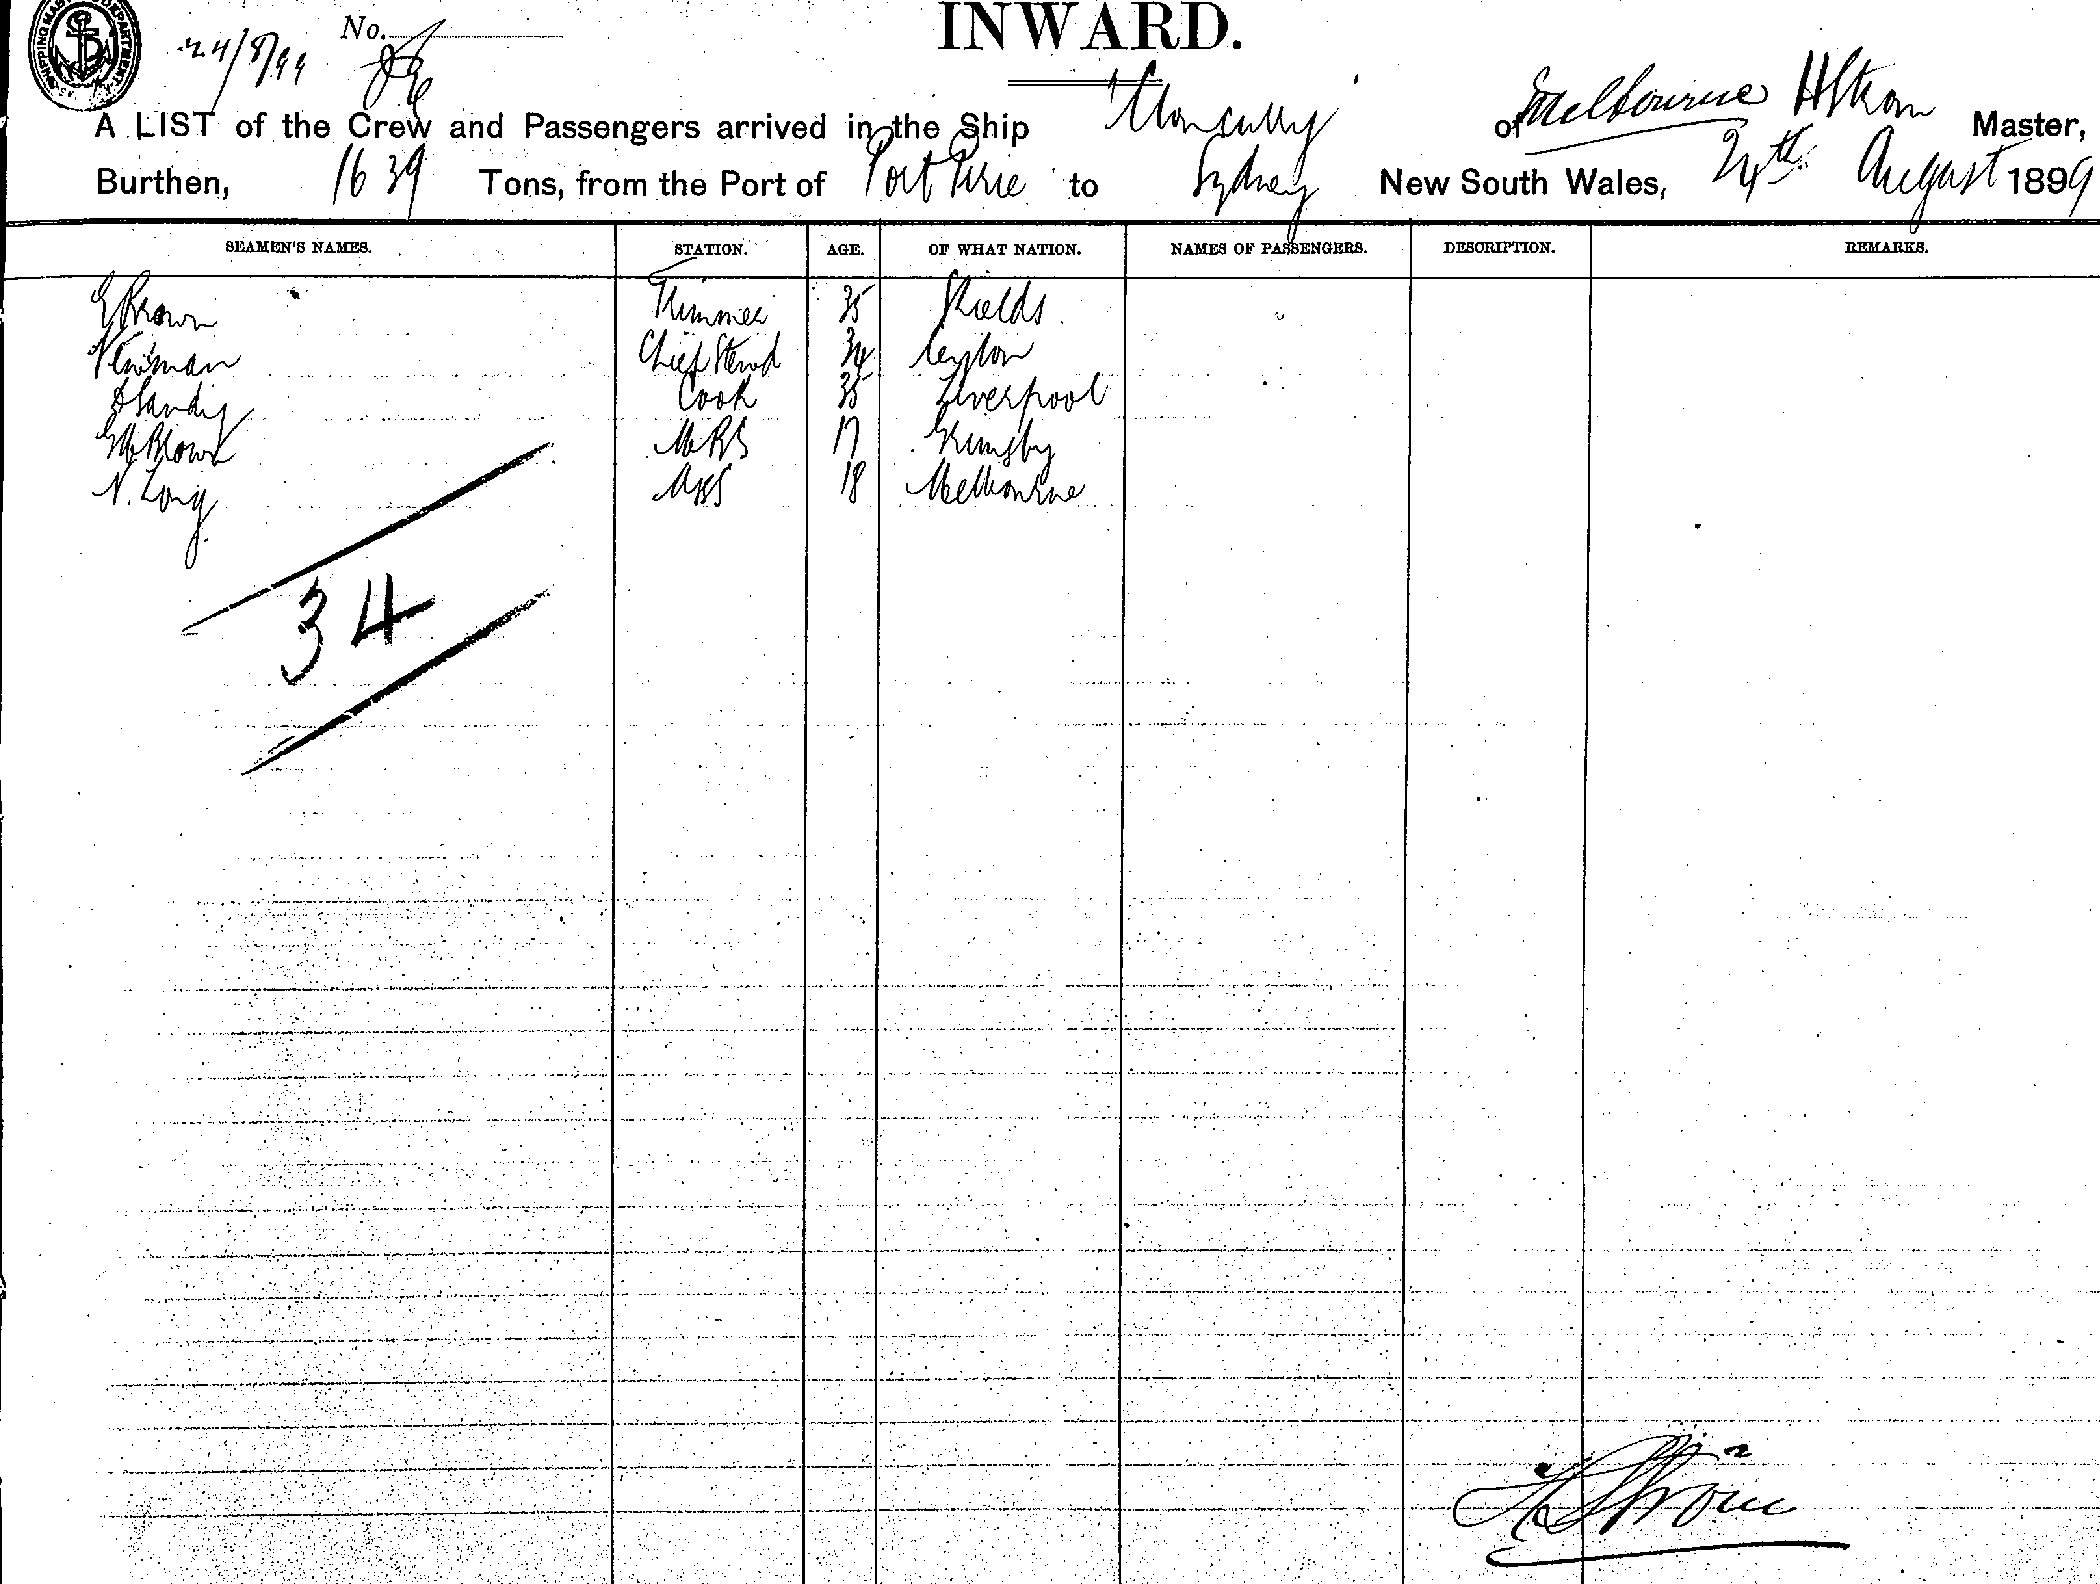 INWARD.
24/8/99 No.
A LIST of the Crew and Passengers arrived in the Ship of Melbourne H Strom Master,
Burthen, 1639 Tons, from the Port of Port Pirie to Sydney New South Wales, 24th August 1899
SEAMEN'S NAMES. STATION. AGE. OF WHAT NATION. NAMES OF PASSENGERS. DESCRIPTION. REMARKS.
E Brown Trimmer 35 Shields
Newman Chief Stewd 34 Ceylon
Cook 35 Liverpool
Brown 17 Grimsby
N. Long 18 Melbourne
34
H Strom